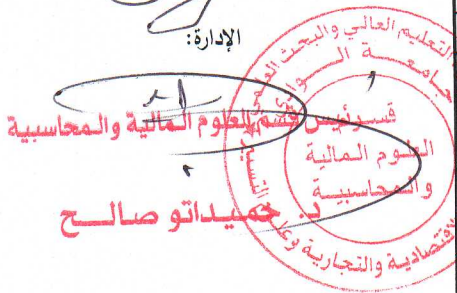 الإدارة:
رئيس قسم العلوم المالية والمحاسبية
د. حميداتو صالح
التعليم العالي والبحث العلمي
جامعة الوادي
قسم
العلوم المالية
والمحاسبية
الاقتصادية والتجارية وعلوم التسيير